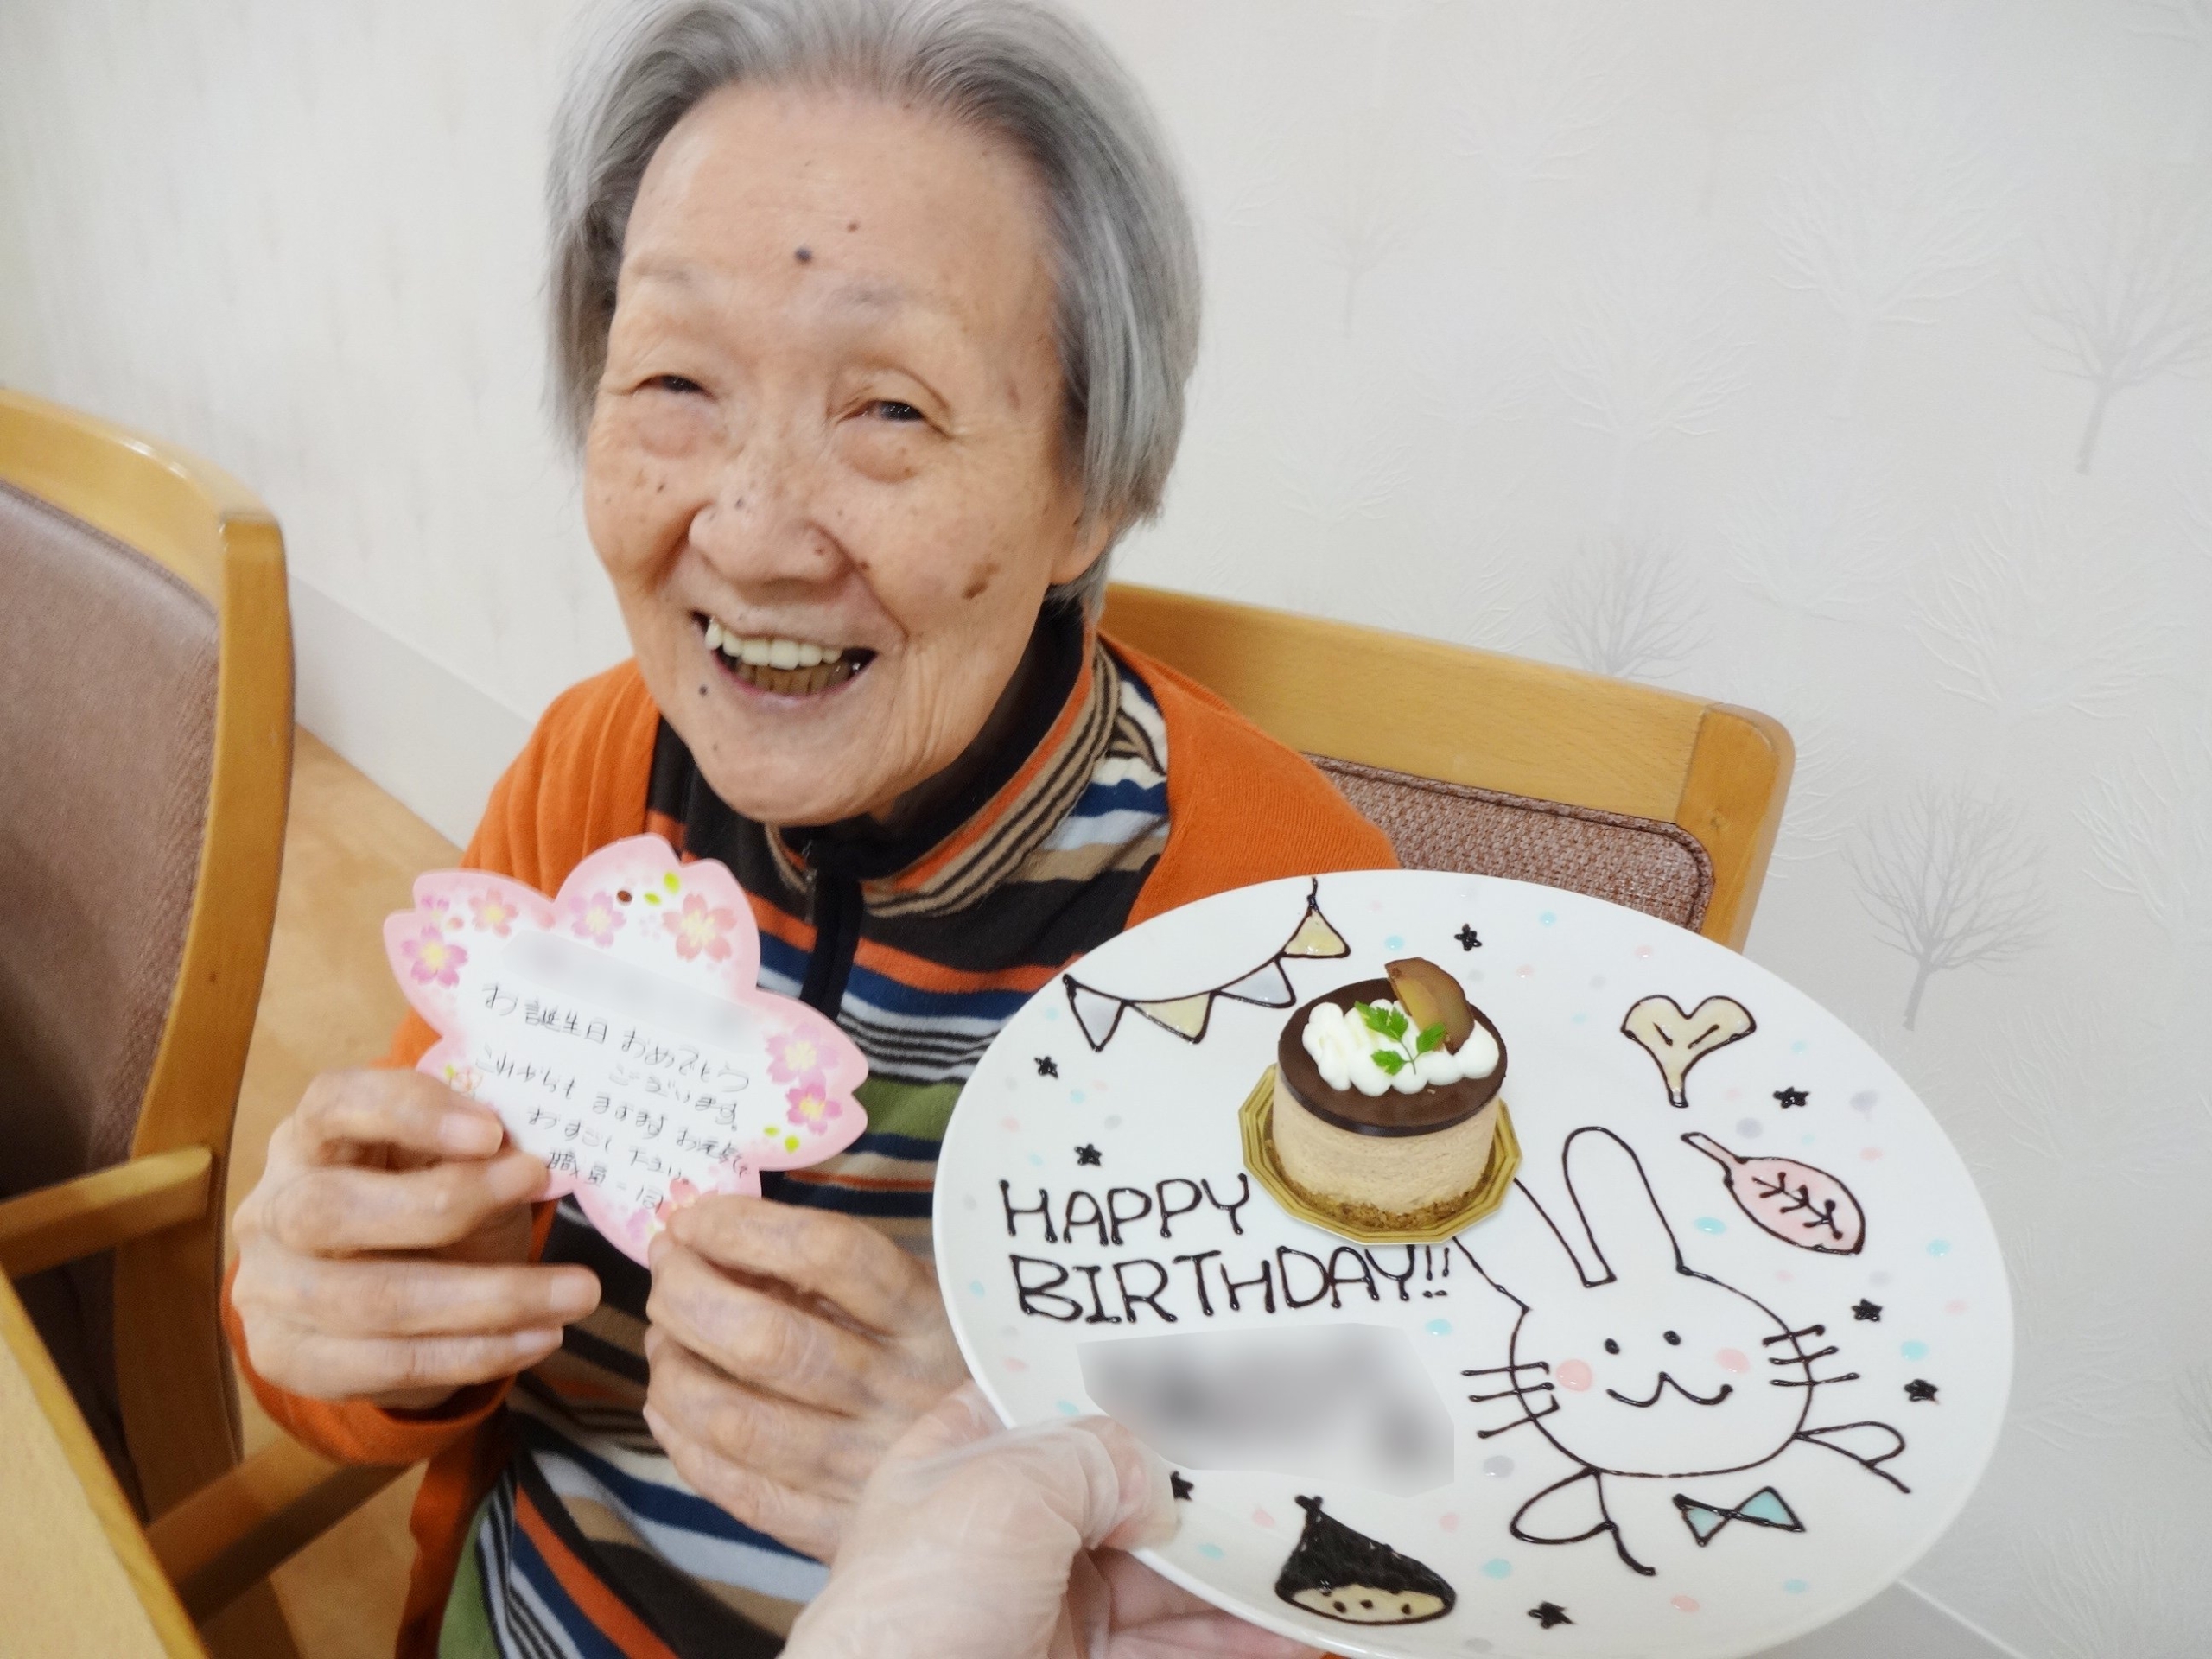 お誕生日 おめでとう
ございます。
これからも ますます お元気で
おすごし 下さい。
職員一同
HAPPY
BIRTHDAY!!